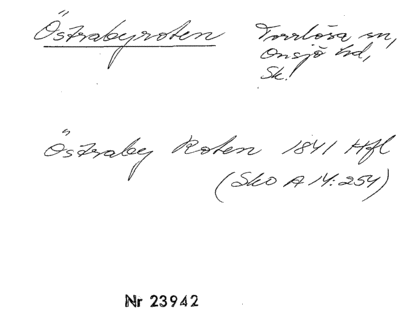 Östrabyroten Torrlösa sn,
Onsjö hd,
Sk.
Östraby Roten 1841 Hfl
(Sko A 14:254)
Nr 23942